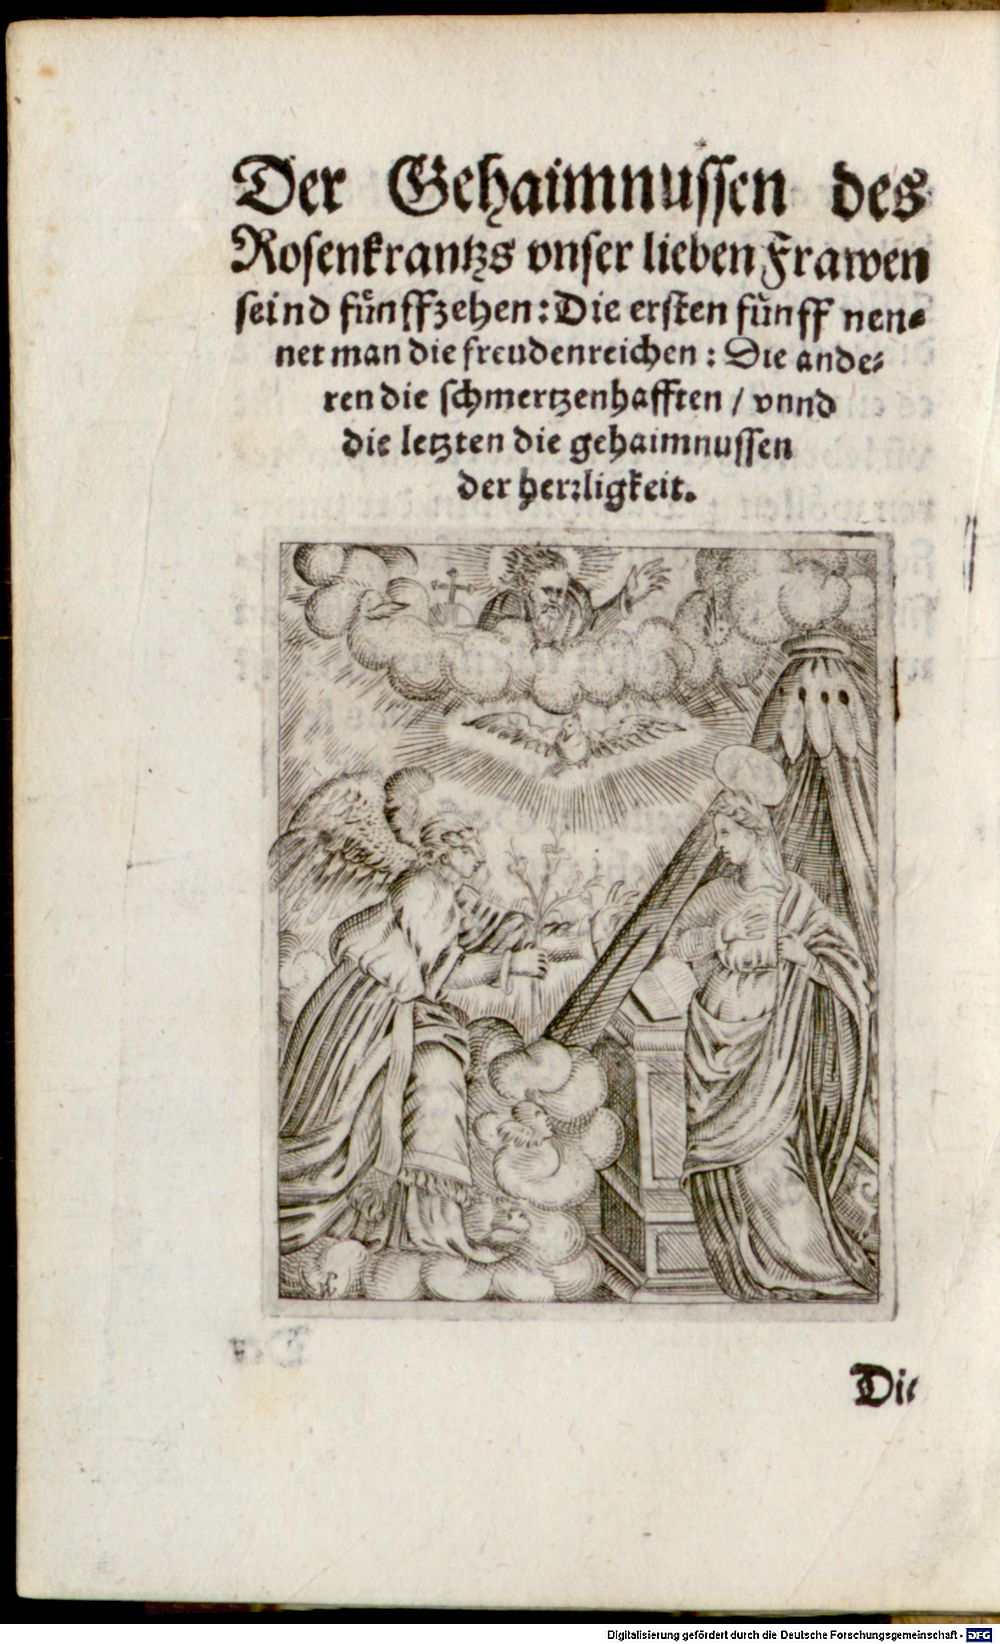 Der Gehaimnussen des
Rosenkrantzs vnser lieben Frawen
seind fuͤnffzehen: Die ersten fuͤnff nen-
net man die freudenreichen: Die ande-
ren die schmertzenhafften / vnnd
die letzten die gehaimnussen
der herꝛligkeit.
Die
Digitalisierung gefördert durch die Deutsche Forschungsgemeinschaft - DFG